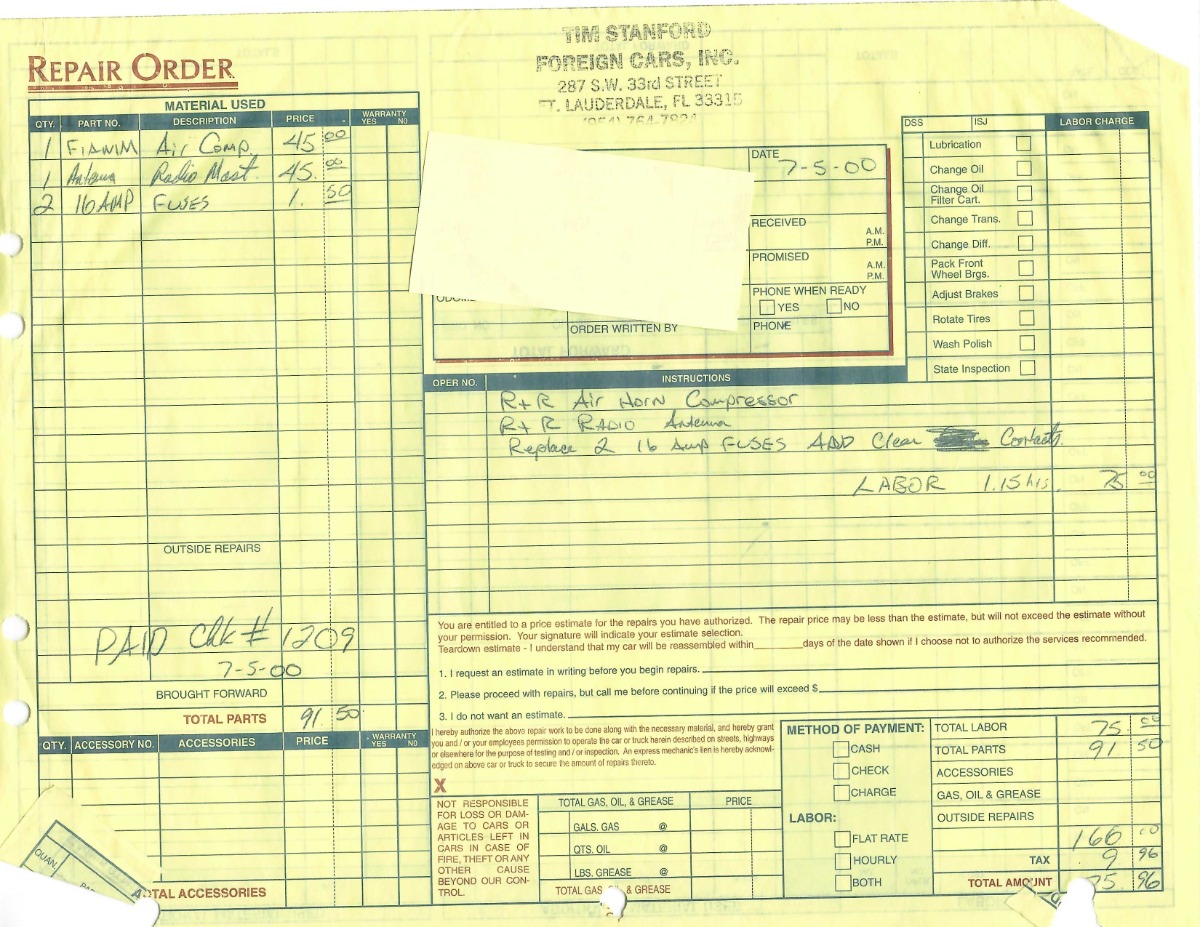 TIM STANFORD
FOREIGN CARS, INC.
287 S.W. 33rd STREET
FT. LAUDERDALE, FL 33315
(954) 764-7824
REPAIR ORDER
MATERIAL USED
QTY. PART NO. DESCRIPTION PRICE WARRANTY YES NO
1 FIAMM Air Comp. 45 00
1 Antenna Radio Mast. 45. 00
2 16 AMP FUSES 1. 50
OUTSIDE REPAIRS
PAID Chk # 1209
7-5-00
BROUGHT FORWARD
TOTAL PARTS 91 50
QTY. ACCESSORY NO. ACCESSORIES PRICE WARRANTY YES NO
QUAN.
TOTAL ACCESSORIES
DATE 7-5-00
RECEIVED A.M. P.M.
PROMISED A.M. P.M.
PHONE WHEN READY
YES NO
ORDER WRITTEN BY
PHONE
DSS ISJ LABOR CHARGE
Lubrication
Change Oil
Change Oil Filter Cart.
Change Trans.
Change Diff.
Pack Front Wheel Brgs.
Adjust Brakes
Rotate Tires
Wash Polish
State Inspection
OPER NO. INSTRUCTIONS
R+R Air Horn Compressor
R+R RADIO Antenna
Replace 2 16 Amp FUSES AND Clean Contacts.
LABOR 1.15 hrs. 75 00
You are entitled to a price estimate for the repairs you have authorized. The repair price may be less than the estimate, but will not exceed the estimate without
your permission. Your signature will indicate your estimate selection.
Teardown estimate - I understand that my car will be reassembled within_______days of the date shown if I choose not to authorize the services recommended.
1. I request an estimate in writing before you begin repairs.
2. Please proceed with repairs, but call me before continuing if the price will exceed $
3. I do not want an estimate.
I hereby authorize the above repair work to be done along with the necessary material, and hereby grant
you and / or your employees permission to operate the car or truck herein described on streets, highways
or elsewhere for the purpose of testing and / or inspection. An express mechanic's lien is hereby acknowl-
edged on above car or truck to secure the amount of repairs thereto.
X
NOT RESPONSIBLE
FOR LOSS OR DAM-
AGE TO CARS OR
ARTICLES LEFT IN
CARS IN CASE OF
FIRE, THEFT OR ANY
OTHER CAUSE
BEYOND OUR CON-
TROL.
TOTAL GAS, OIL, & GREASE PRICE
GALS. GAS @
QTS. OIL @
LBS. GREASE @
TOTAL GAS, OIL & GREASE
METHOD OF PAYMENT:
CASH
CHECK
CHARGE
LABOR:
FLAT RATE
HOURLY
BOTH
TOTAL LABOR 75 00
TOTAL PARTS 91 50
ACCESSORIES
GAS, OIL & GREASE
OUTSIDE REPAIRS
166
TAX 9 96
TOTAL AMOUNT 75 96